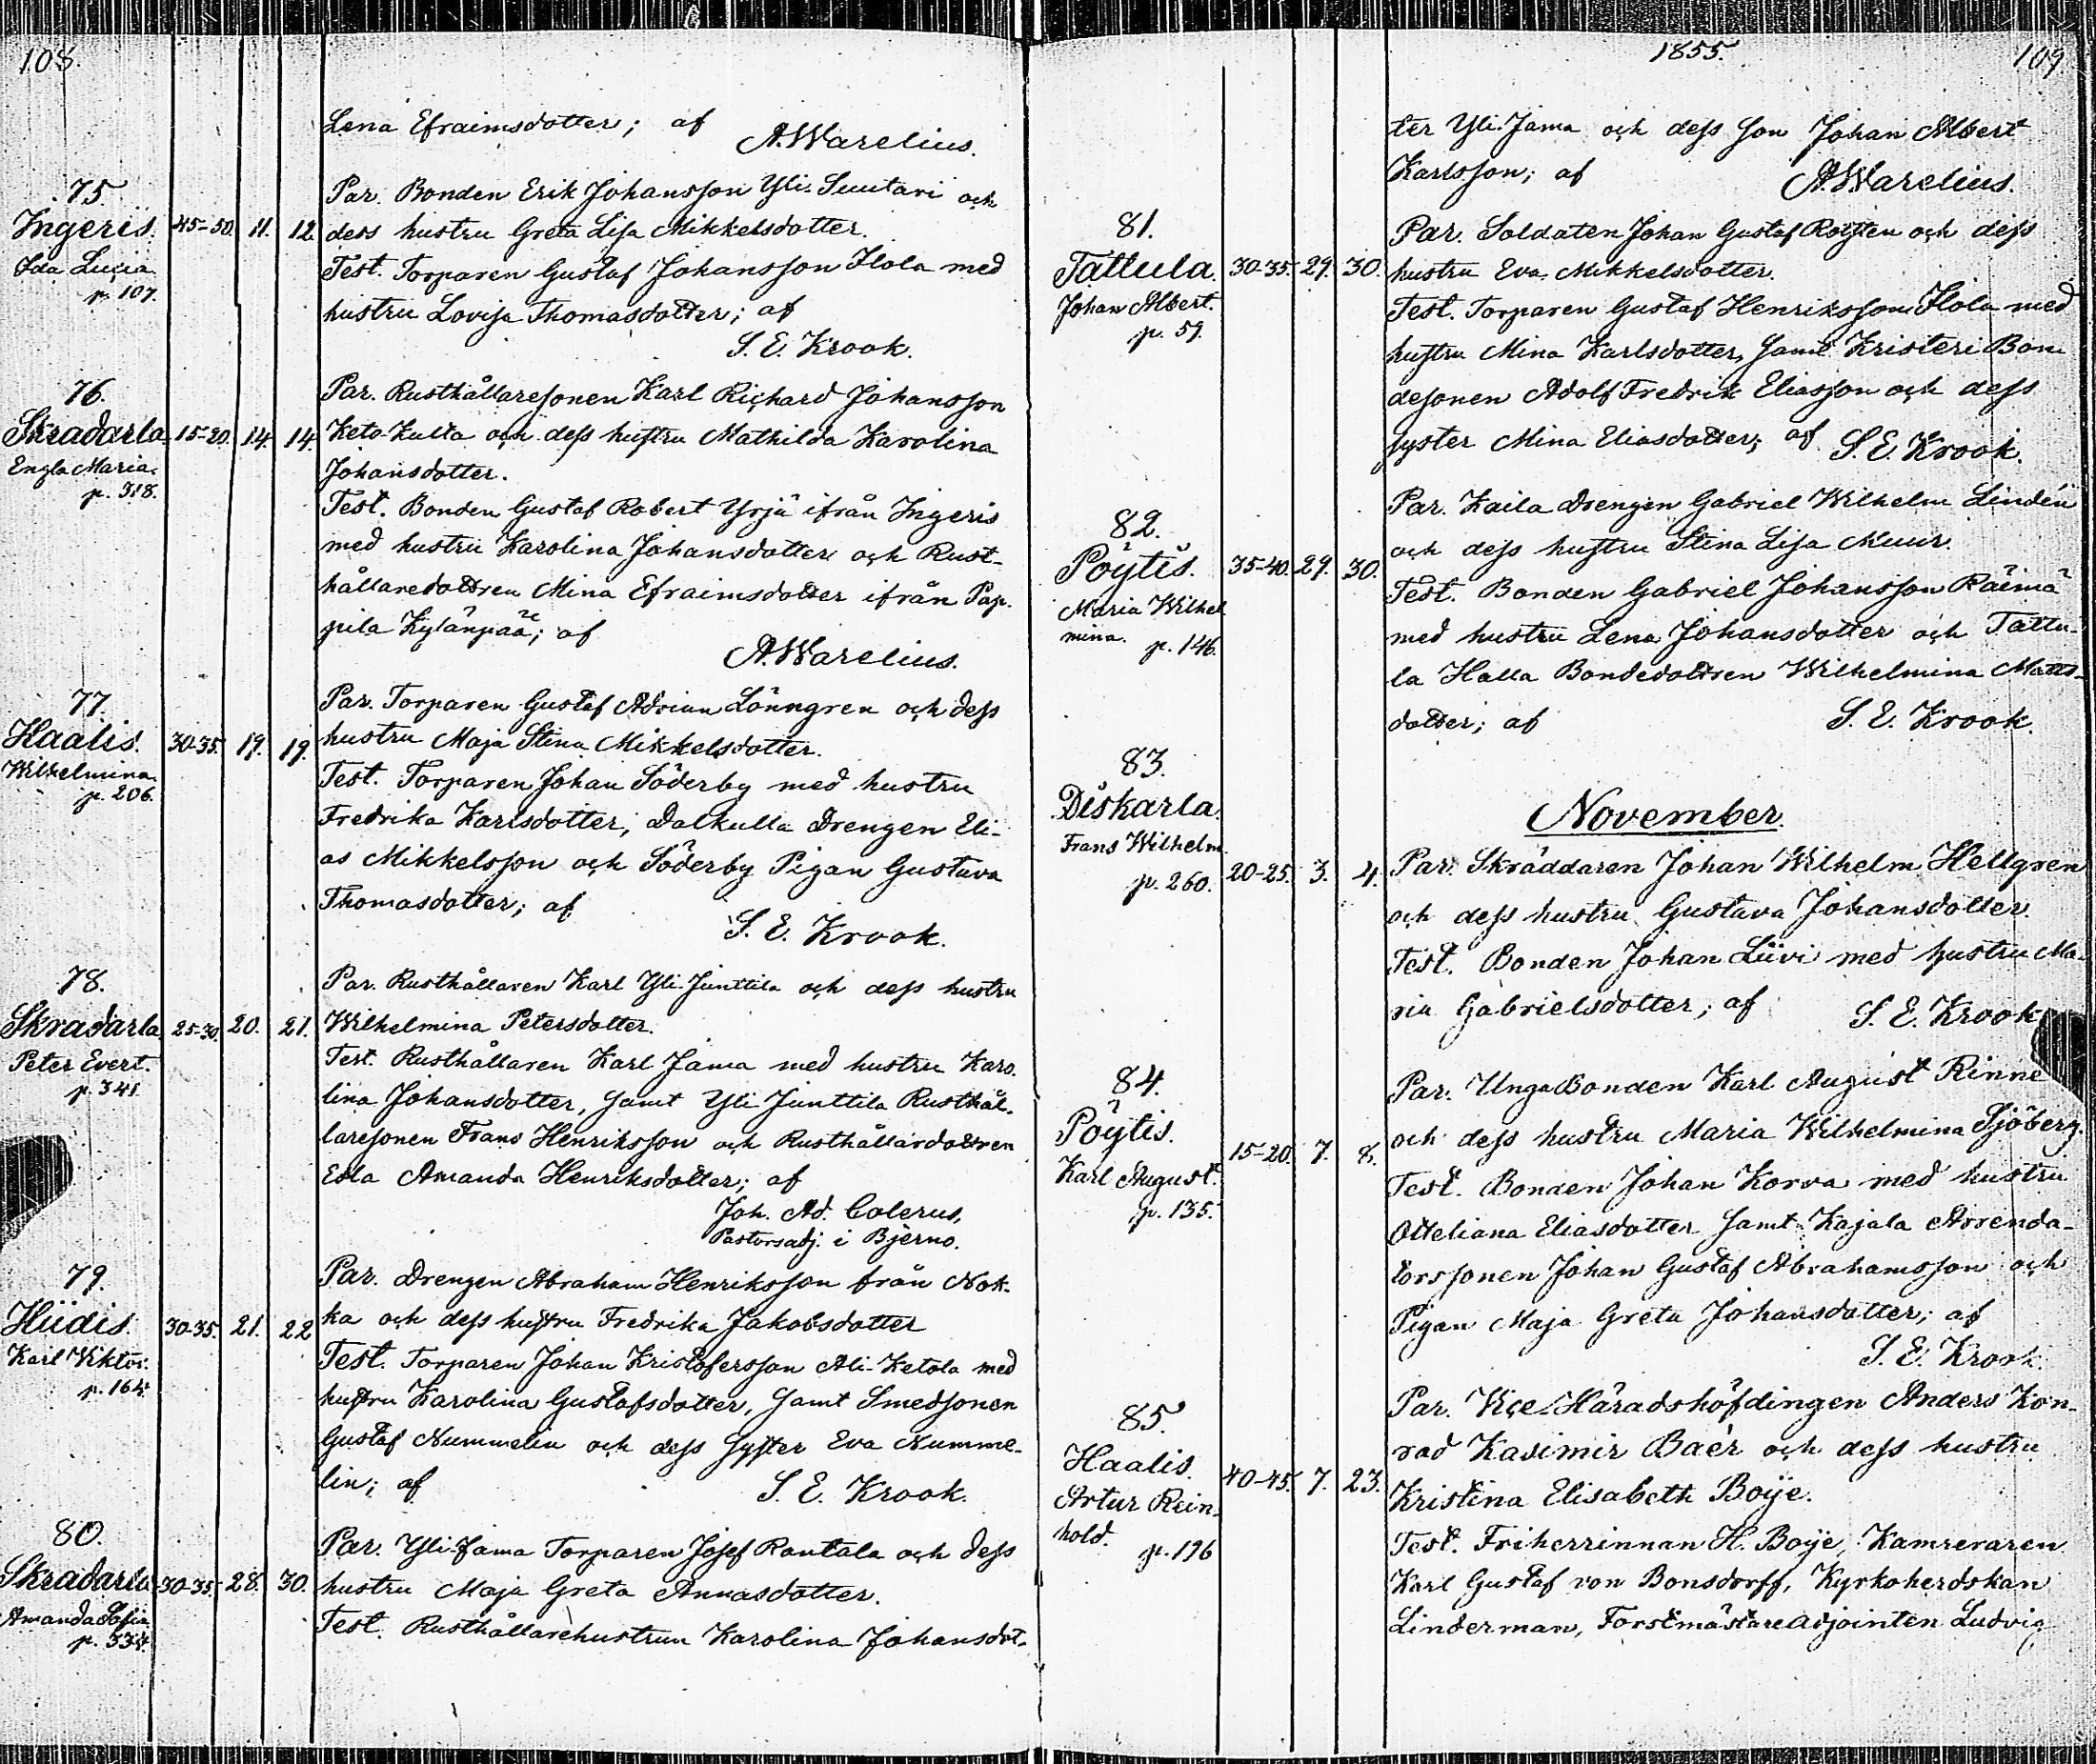 108.
Lena Efraimsdotter; af
A. Warelius.
75.
Ingeris. 45-50. 11. 12.
Ida Lucia.
p. 107.
Par. Bonden Erik Johansson Yli-Suutari och
dess hustru Greta Lisa Mikkelsdotter.
Test. Torparen Gustaf Johansson Ilola med
hustru Lovisa Thomasdotter; af
S. E. Krook.
76.
Skradarla 15-20. 14. 14.
Engla Maria.
p. 318.
Par. Rusthållaresonen Karl Richard Johansson
Keto-Kulta och dess hustru Mathilda Karolina
Johansdotter.
Test. Bonden Gustaf Robert Yrjä ifrån Ingeris
med hustru Karolina Johansdotter och Rust-
hållaredottren Mina Efraimsdotter ifrån Pap-
pila Kylänpää; af
A. Warelius.
77.
Haalis. 30-35. 19. 19.
Wilhelmina.
p. 206.
Par. Torparen Gustaf Adrian Lönngren och dess
hustru Maja Stina Mikkelsdotter.
Test. Torparen Johan Söderby med hustru
Fredrika Karlsdotter, Dalkulla Drengen Eli-
as Mikkelsson och Söderby Pigan Gustava
Thomasdotter; af
S. E. Krook.
78.
Skradarla 25-30. 20. 21.
Peter Evert.
p. 341.
Par. Rusthållaren Karl Yli-Junttila och dess hustru
Wilhelmina Petersdotter.
Test. Rusthållaren Karl Jama med hustru Karo-
lina Johansdotter, samt Yli Junttila Rusthål-
laresonen Frans Henriksson och Rusthållardottren
Edla Amanda Henriksdotter; af
Joh. Ad. Colerus,
Pastorsadj. i Bjerno.
79.
Hiidis. 30-35. 21. 22
Karl Viktor.
p. 164.
Par. Drengen Abraham Henriksson från Nok-
ka och dess hustru Fredrika Jakobsdotter
Test. Torparen Johan Kristofersson Ali-Ketola med
hustru Karolina Gustafsdotter, samt Smedsonen
Gustaf Nummelin och dess syster Eva Numme-
lin; af
S. E. Krook.
80.
Skradarla 30-35. 28. 30.
Amanda Sofia
p. 334.
Par. Yli-Jama Torparen Josef Rantala och dess
hustru Maja Greta Annasdotter.
Test. Rusthållarehustrun Karolina Johansdot-
1855. 109
ter Yli-Jama och dess son Johan Albert
Karlsson; af
A. Warelius.
81.
Tattula. 30-35. 29. 30.
Johan Albert.
p. 59.
Par. Soldaten Johan Gustaf Rotsten och dess
hustru Eva Mikkelsdotter.
Test. Torparen Gustaf Henriksson Ilola med
hustru Mina Karlsdotter, samt Kristeri Bon-
desonen Adolf Fredrik Eliasson och dess
syster Mina Eliasdotter; af S. E. Krook.
82.
Pöytis. 35-40. 29. 30.
Maria Wilhel
mina. p. 146.
Par. Kaila Drengen Gabriel Wilhelm Lindén
och dess hustru Stina Lisa Muur.
Test. Bonden Gabriel Johansson Räimä
med hustru Lena Johansdotter och Tattu-
la Halla Bondedottren Wilhelmina Matts-
dotter; af S. E. Krook.
November.
83.
Diskarla.
Frans Wilhelm.
p. 260. 20-25. 3. 4.
Par. Skräddaren Johan Wilhelm Hellgren
och dess hustru Gustava Johansdotter.
Test. Bonden Johan Liivi med hustru Ma-
ria Gabrielsdotter; af S. E. Krook
84.
Pöytis.
15-20. 7. 8.
Karl August.
p. 135.
Par. Unga Bonden Karl August Rinne
och dess hustru Maria Wilhelmina Sjöberg.
Test. Bonden Johan Korva med hustru
Otteliana Eliasdotter samt Kajala Arrenda-
torssonen Johan Gustaf Abrahamsson och
Pigan Maja Greta Johansdotter; af
S. E. Krook.
85.
Haalis. 40-45. 7. 23.
Artur Rein-
hold. p. 196
Par. Vice-Häradshöfdingen Anders Kon-
rad Kasimir Baér och dess hustru
Kristina Elisabeth Boije.
Test. Friherrinnan H. Boije, Kamreraren
Karl Gustaf von Bonsdorff, Kyrkoherdskan
Linderman, Forstmästareadjointen Ludvig